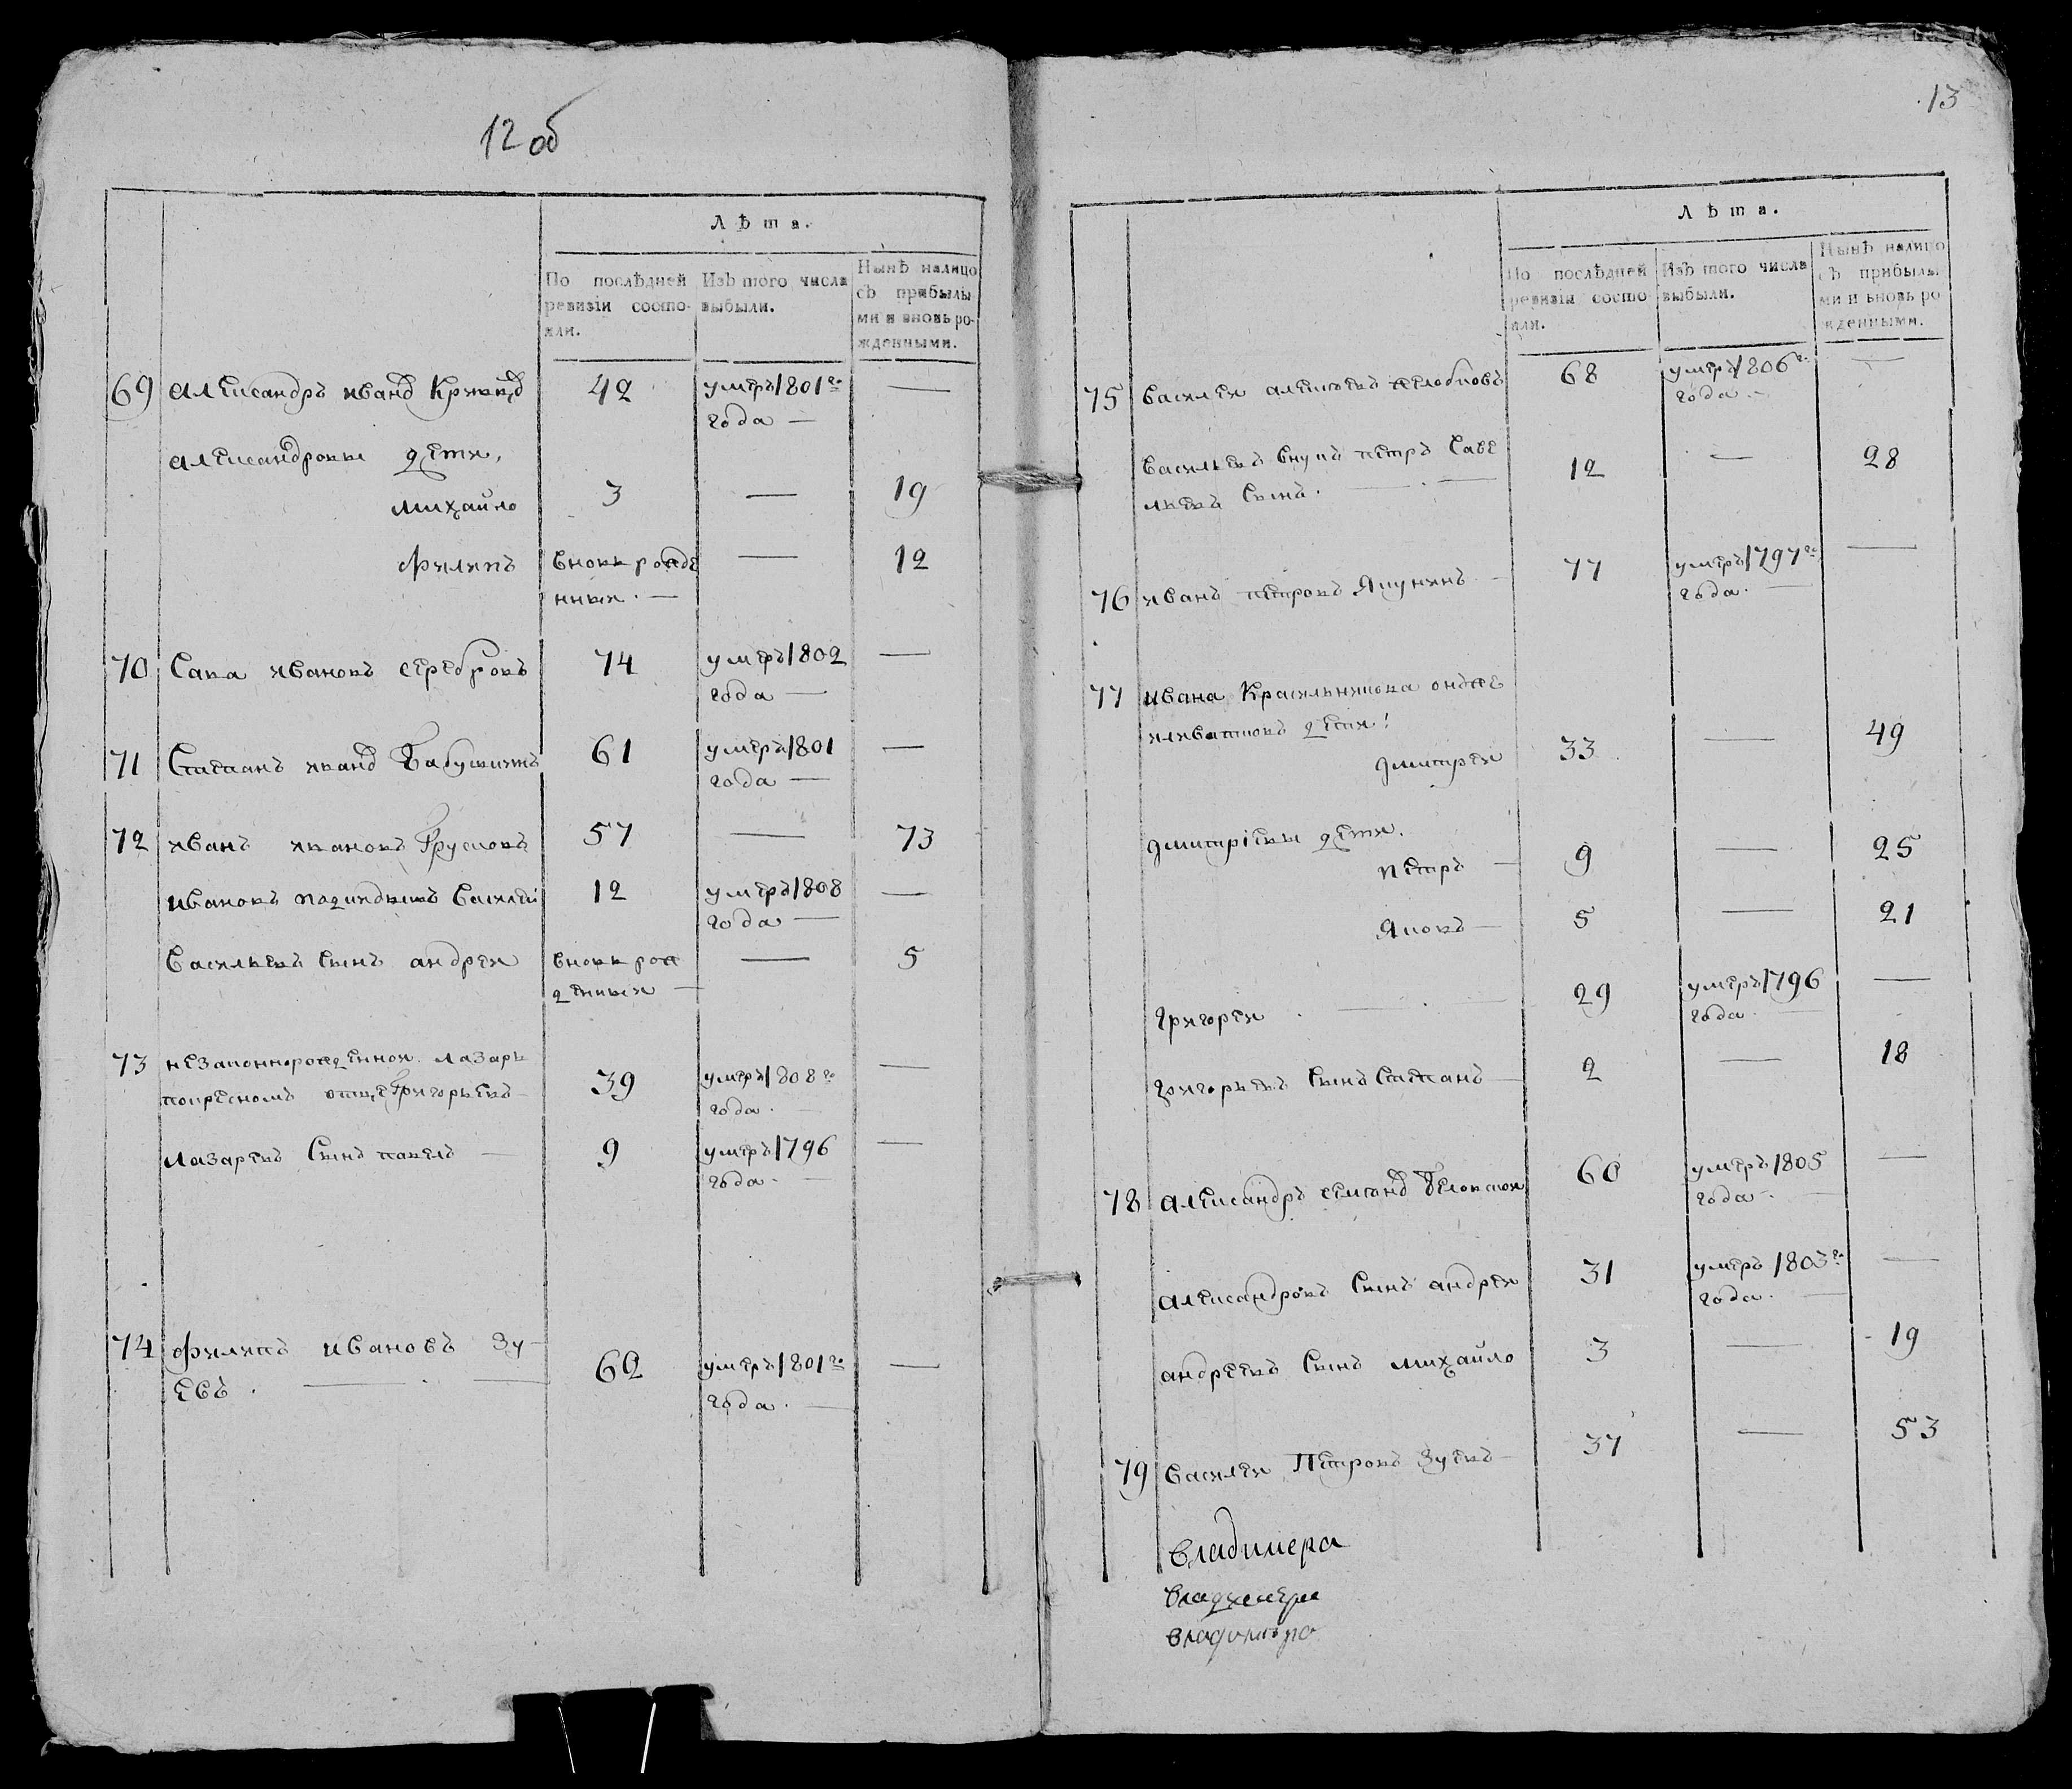 12 об
Лѣта.
По послѣдней ревизіи состояли.
Изъ того числа выбыли.
Нынѣ налицо съ прибылыми и вновь рожденными.
69 Александръ Ивановъ 42 умеръ 1801го
года —
Александровы дети,
Михайло 3 — 19
Филипъ вновь рожде — 12
нныи. —
70 Сава Ивановъ Серебровъ 74 умеръ 1802 —
года —
71 Степанъ Ивановъ Бабушкинъ 61 умеръ 1801 —
года —
72 Иванъ Ивановъ Трусовъ 57 — 73
Ивановъ Василеи 12 умеръ 1808 —
года —
Васильевъ сынъ Андреи вновь рож — 5
денныи —
73 Незаконнорожденнои Лазарь
покресномъ отце Григорьевъ 39 умеръ 1808го —
года. —
Лазаревъ сынъ Павелъ — 9 умеръ 1796 —
года. —
74 Филипъ Ивановъ Зу-
евъ. — 62 умеръ 1801го —
года. —
13
Лѣта.
По послѣдней ревизіи состояли.
Изъ того числа выбыли.
Нынѣ налицо съ прибылыми и вновь рожденными.
75 Василеи Алексеевъ 68 умеръ 1806го —
года —
Васильевъ внукъ Петръ Саве
льевъ сынъ. — 12 — 28
76 Иванъ Петровъ Якунинъ — 77 умеръ 1797го —
года. —
77 Ивана Красильникова онже
дети:
Дмитреи 33 — 49
Дмитріевы дети.
Петръ — 9 — 25
Яковъ — 5 — 21
Григореи. — 29 умеръ 1796 —
года. —
Григорьевъ сынъ Степанъ — 2 — 18
78 Александръ Семеновъ 60 умеръ 1805 —
года. —
Александровъ сынъ Андреи 31 умеръ 1803го —
года. —
Андреевъ сынъ Михайло 3 — 19
79 Василеи Петровъ Зуевъ — 37 — 53
Владимера
Владимера
Владимера